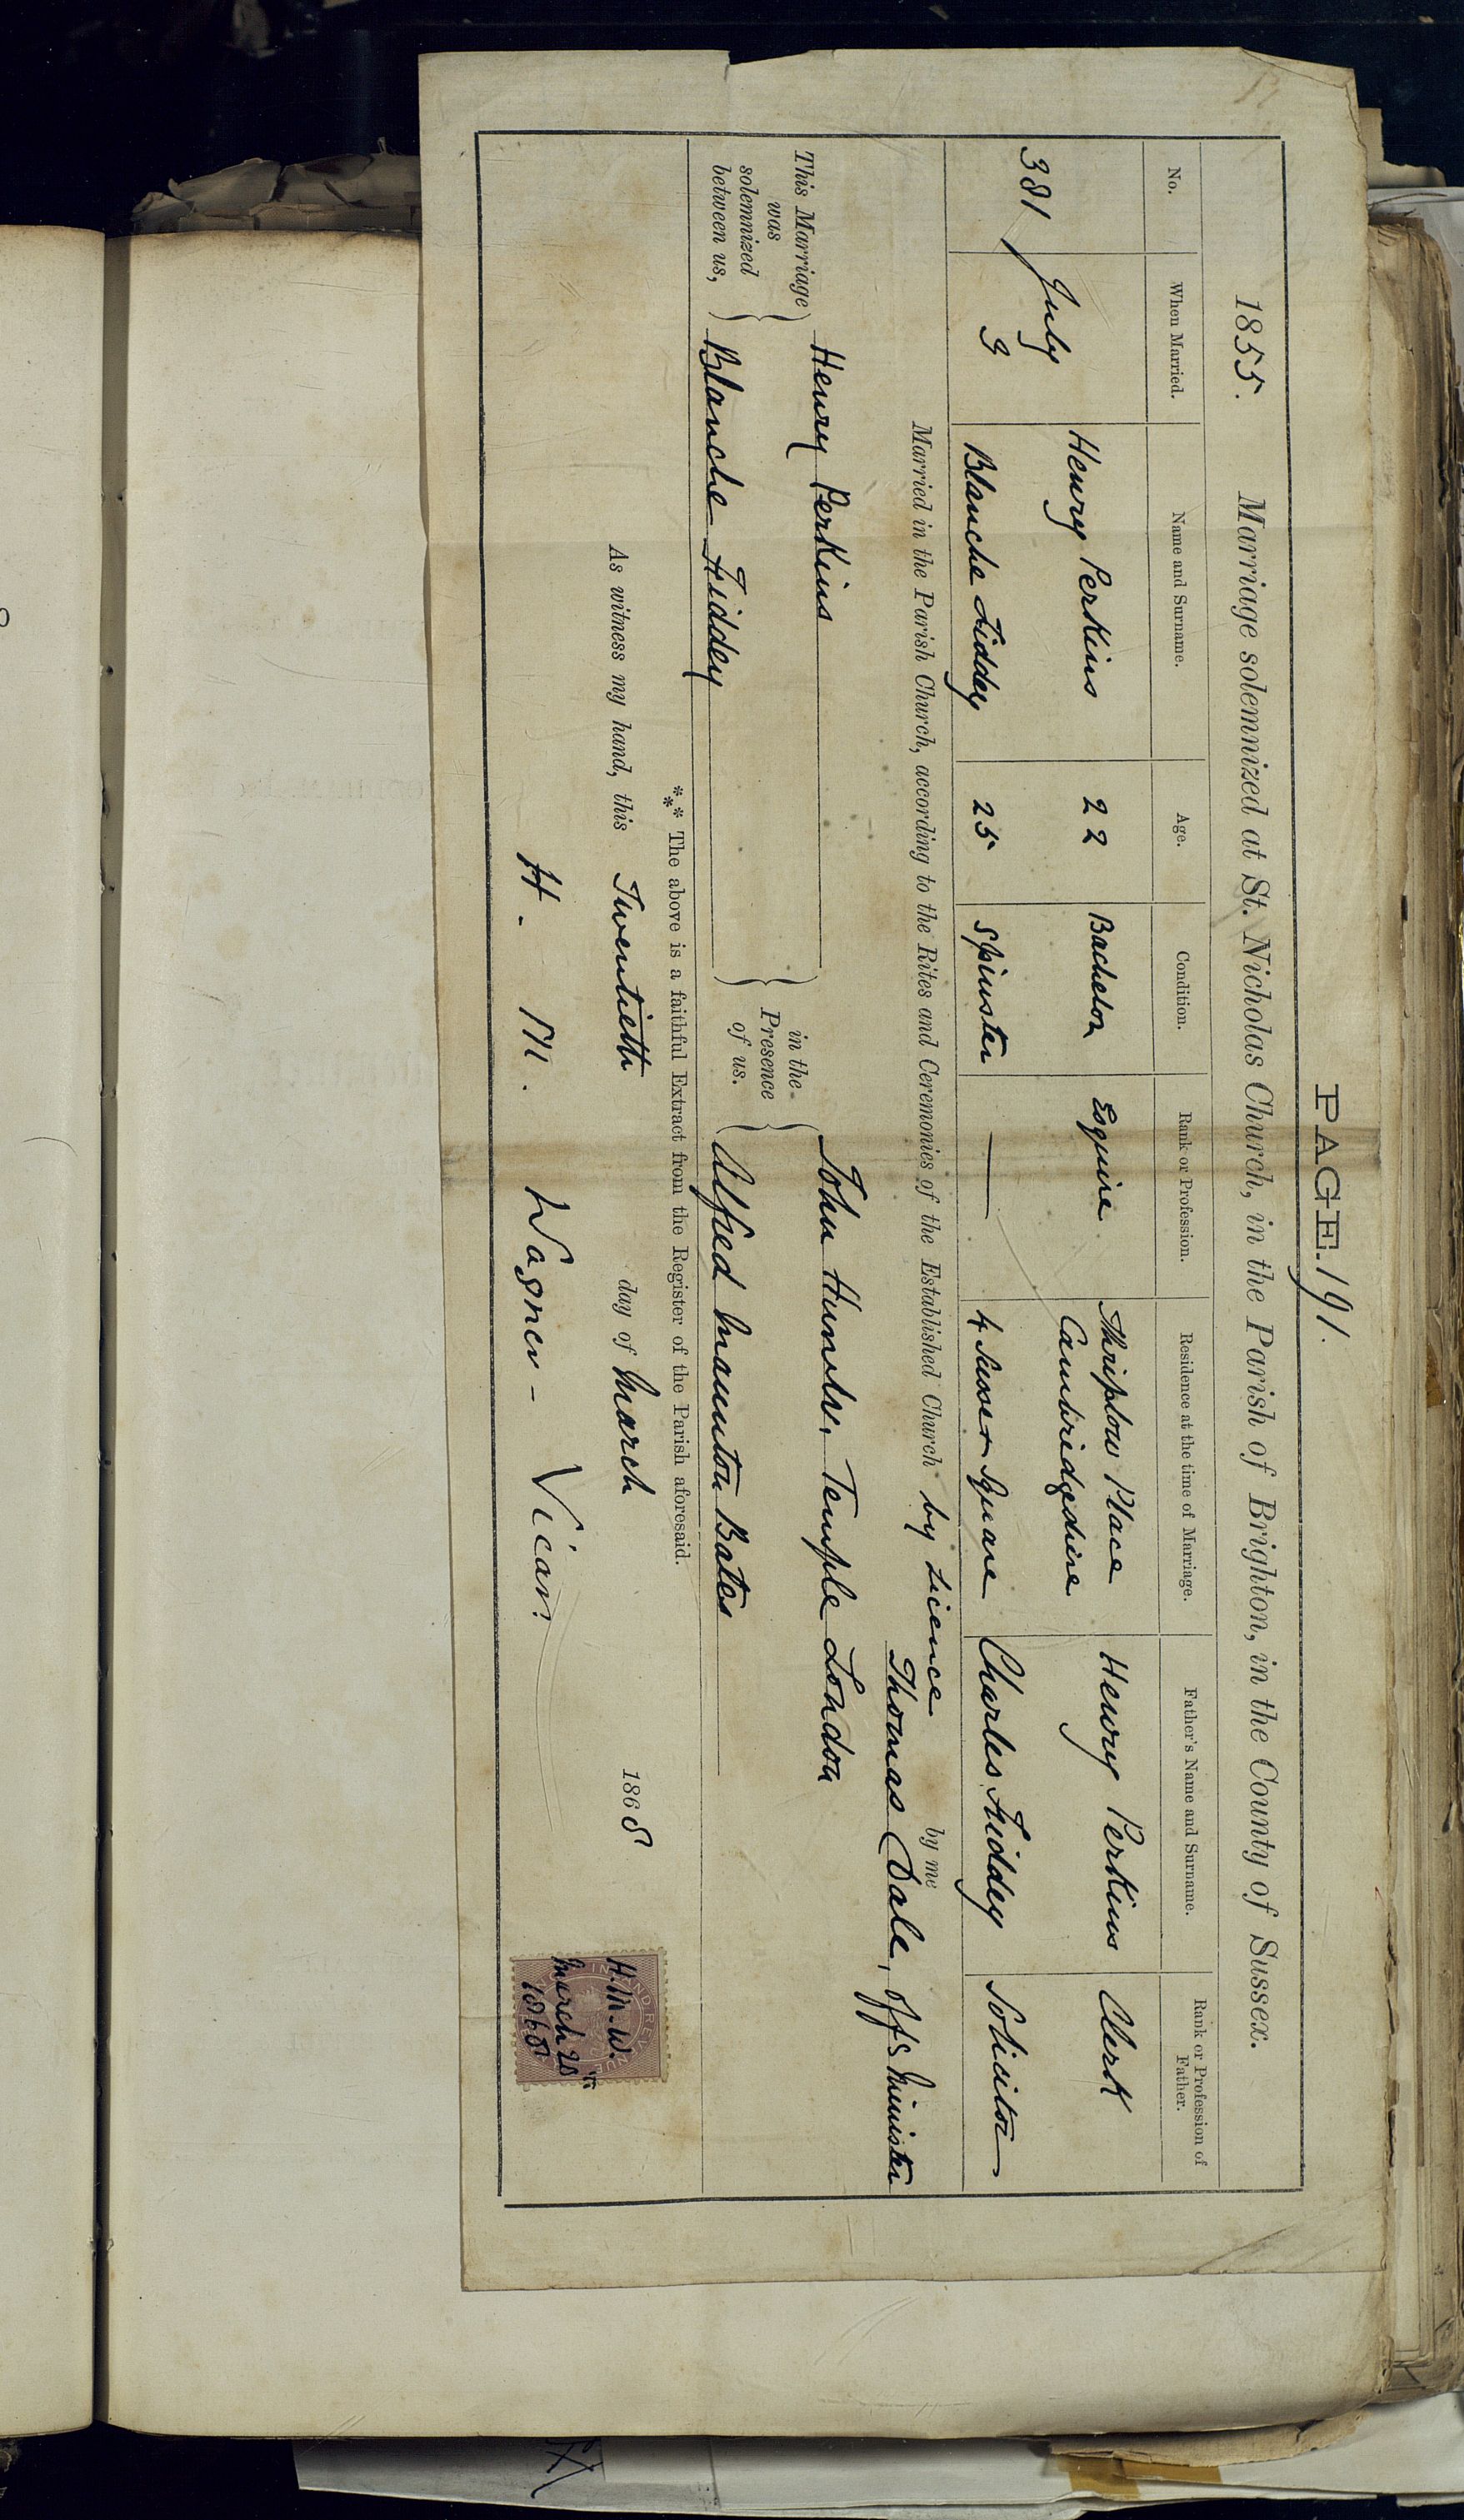 PAGE. 191.
1855. Marriage solemnized at St. Nicholas Church, in the Parish of Brighton, in the County of Sussex.
No. When Married. Name and Surname. Age. Condition. Rank or Profession. Residence at the time of Marriage. Father's Name and Surname. Rank or Profession of Father.
Henry Perkins 22 Bachelor Esquire Thriplow Place Cambridgeshire Henry Perkins Clerk
381 July 3
Blanche Fiddey 25 Spinster — 4 Sussex Square Charles Fiddey Solicitor
Married in the Parish Church, according to the Rites and Ceremonies of the Established Church by Licence by me
Thomas Dale, Offg Minister
This Marriage was solemnized between us, Henry Perkins in the Presence of us. John Hunter, Temple London
Blanche Fiddey Alfred Maunton Bates
*** The above is a faithful Extract from the Register of the Parish aforesaid.
As witness my hand, this Twentieth day of March 1868
H. M. Wagner - Vicar.
INLAND REVENUE
H.M.W.
March 20th
1868